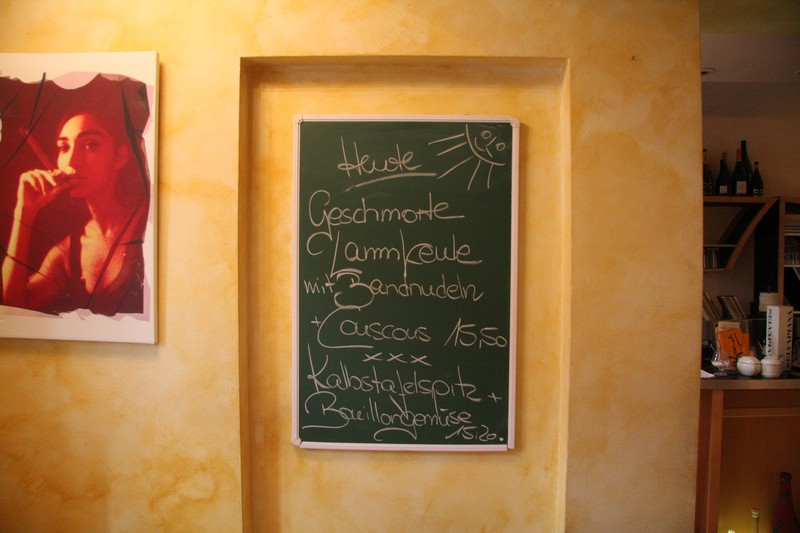 Heute
Geschmorte
Lammkeule
mit Bandnudeln
+ Couscous 15,50
xxx
Kalbstafelspitz +
Bouillongemüse
15,20.